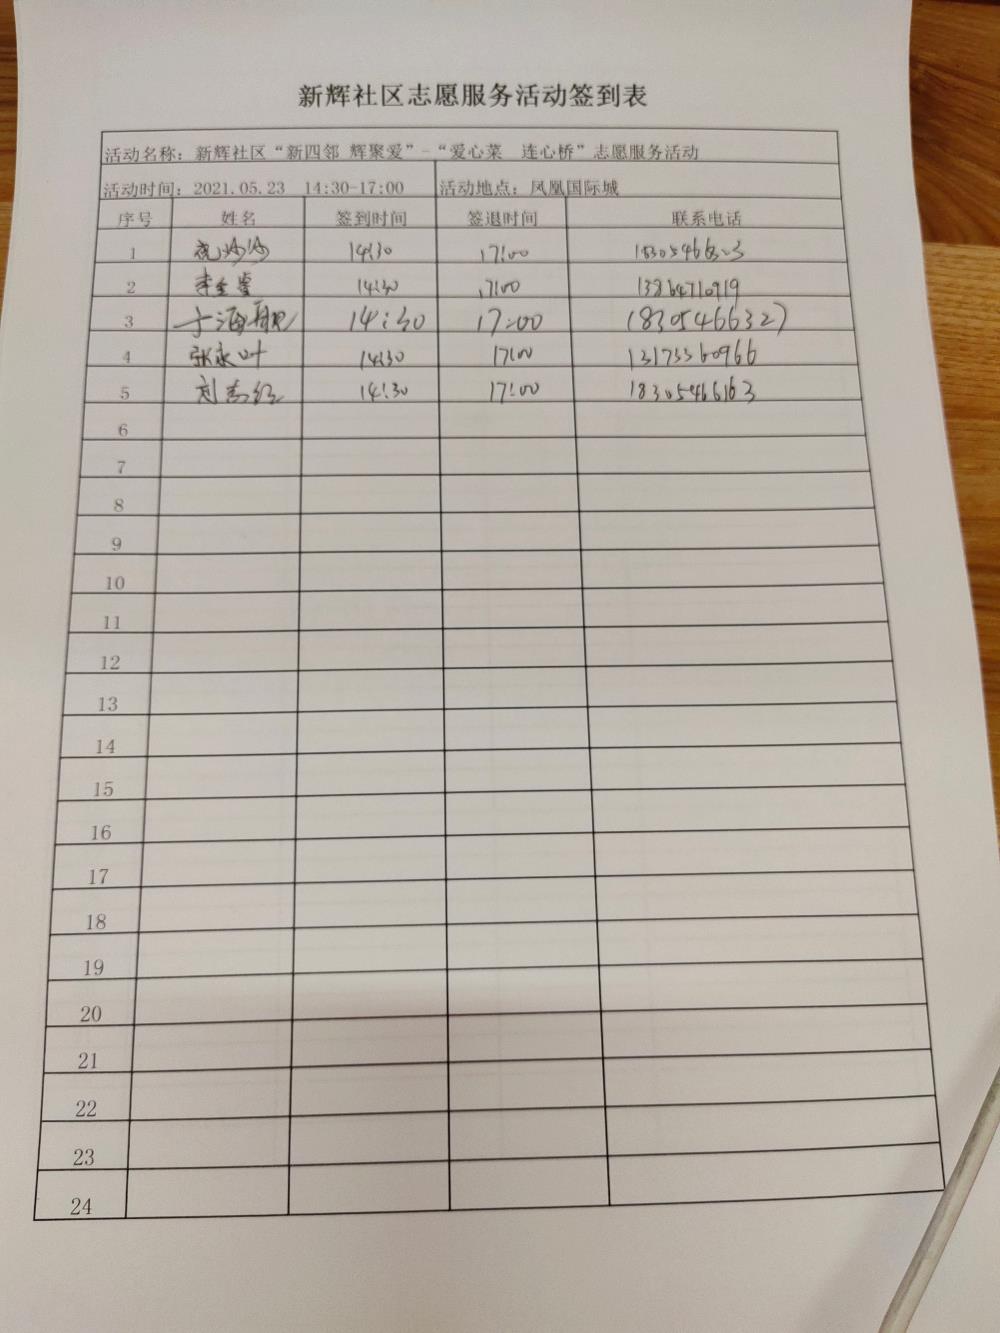 新辉社区志愿服务活动签到表
活动名称：新辉社区“新四邻 辉聚爱”-“爱心菜 连心桥”志愿服务活动
活动时间：2021.05.23 14:30-17:00 活动地点：凤凰国际城
序号 姓名 签到时间 签退时间 联系电话
1 14:30 17:00
2 14:30 17:00 13864710919
3 于海舰 14:30 17:00 18305466327
4 张永叶 14:30 17:00 13173360966
5 14:30 17:00 18305466163
6
7
8
9
10
11
12
13
14
15
16
17
18
19
20
21
22
23
24